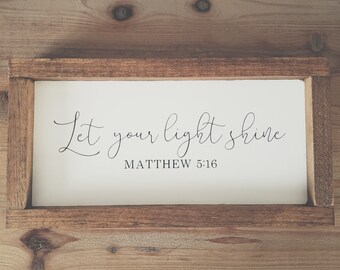 Let your light shine
MATTHEW 5:16